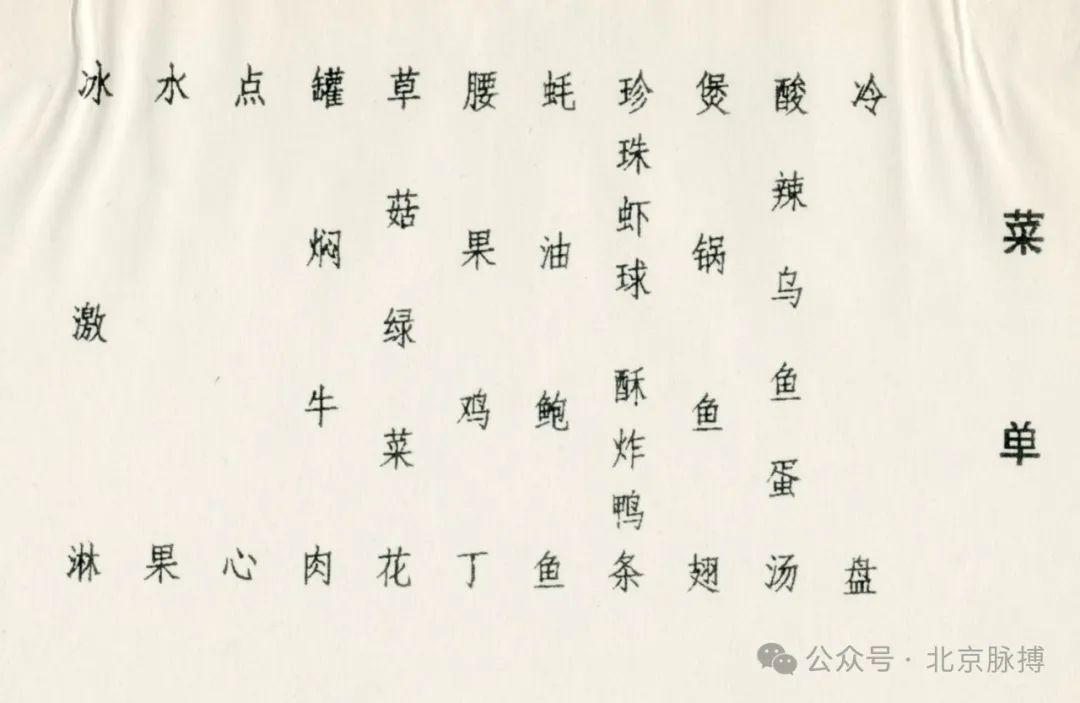 菜单
冷盘
酸辣乌鱼蛋汤
煲锅鱼翅
珍珠虾球 酥炸鸭条
蚝油鲍鱼
腰果鸡丁
草菇绿菜花
罐焖牛肉
点心
水果
冰激淋
公众号·北京脉搏